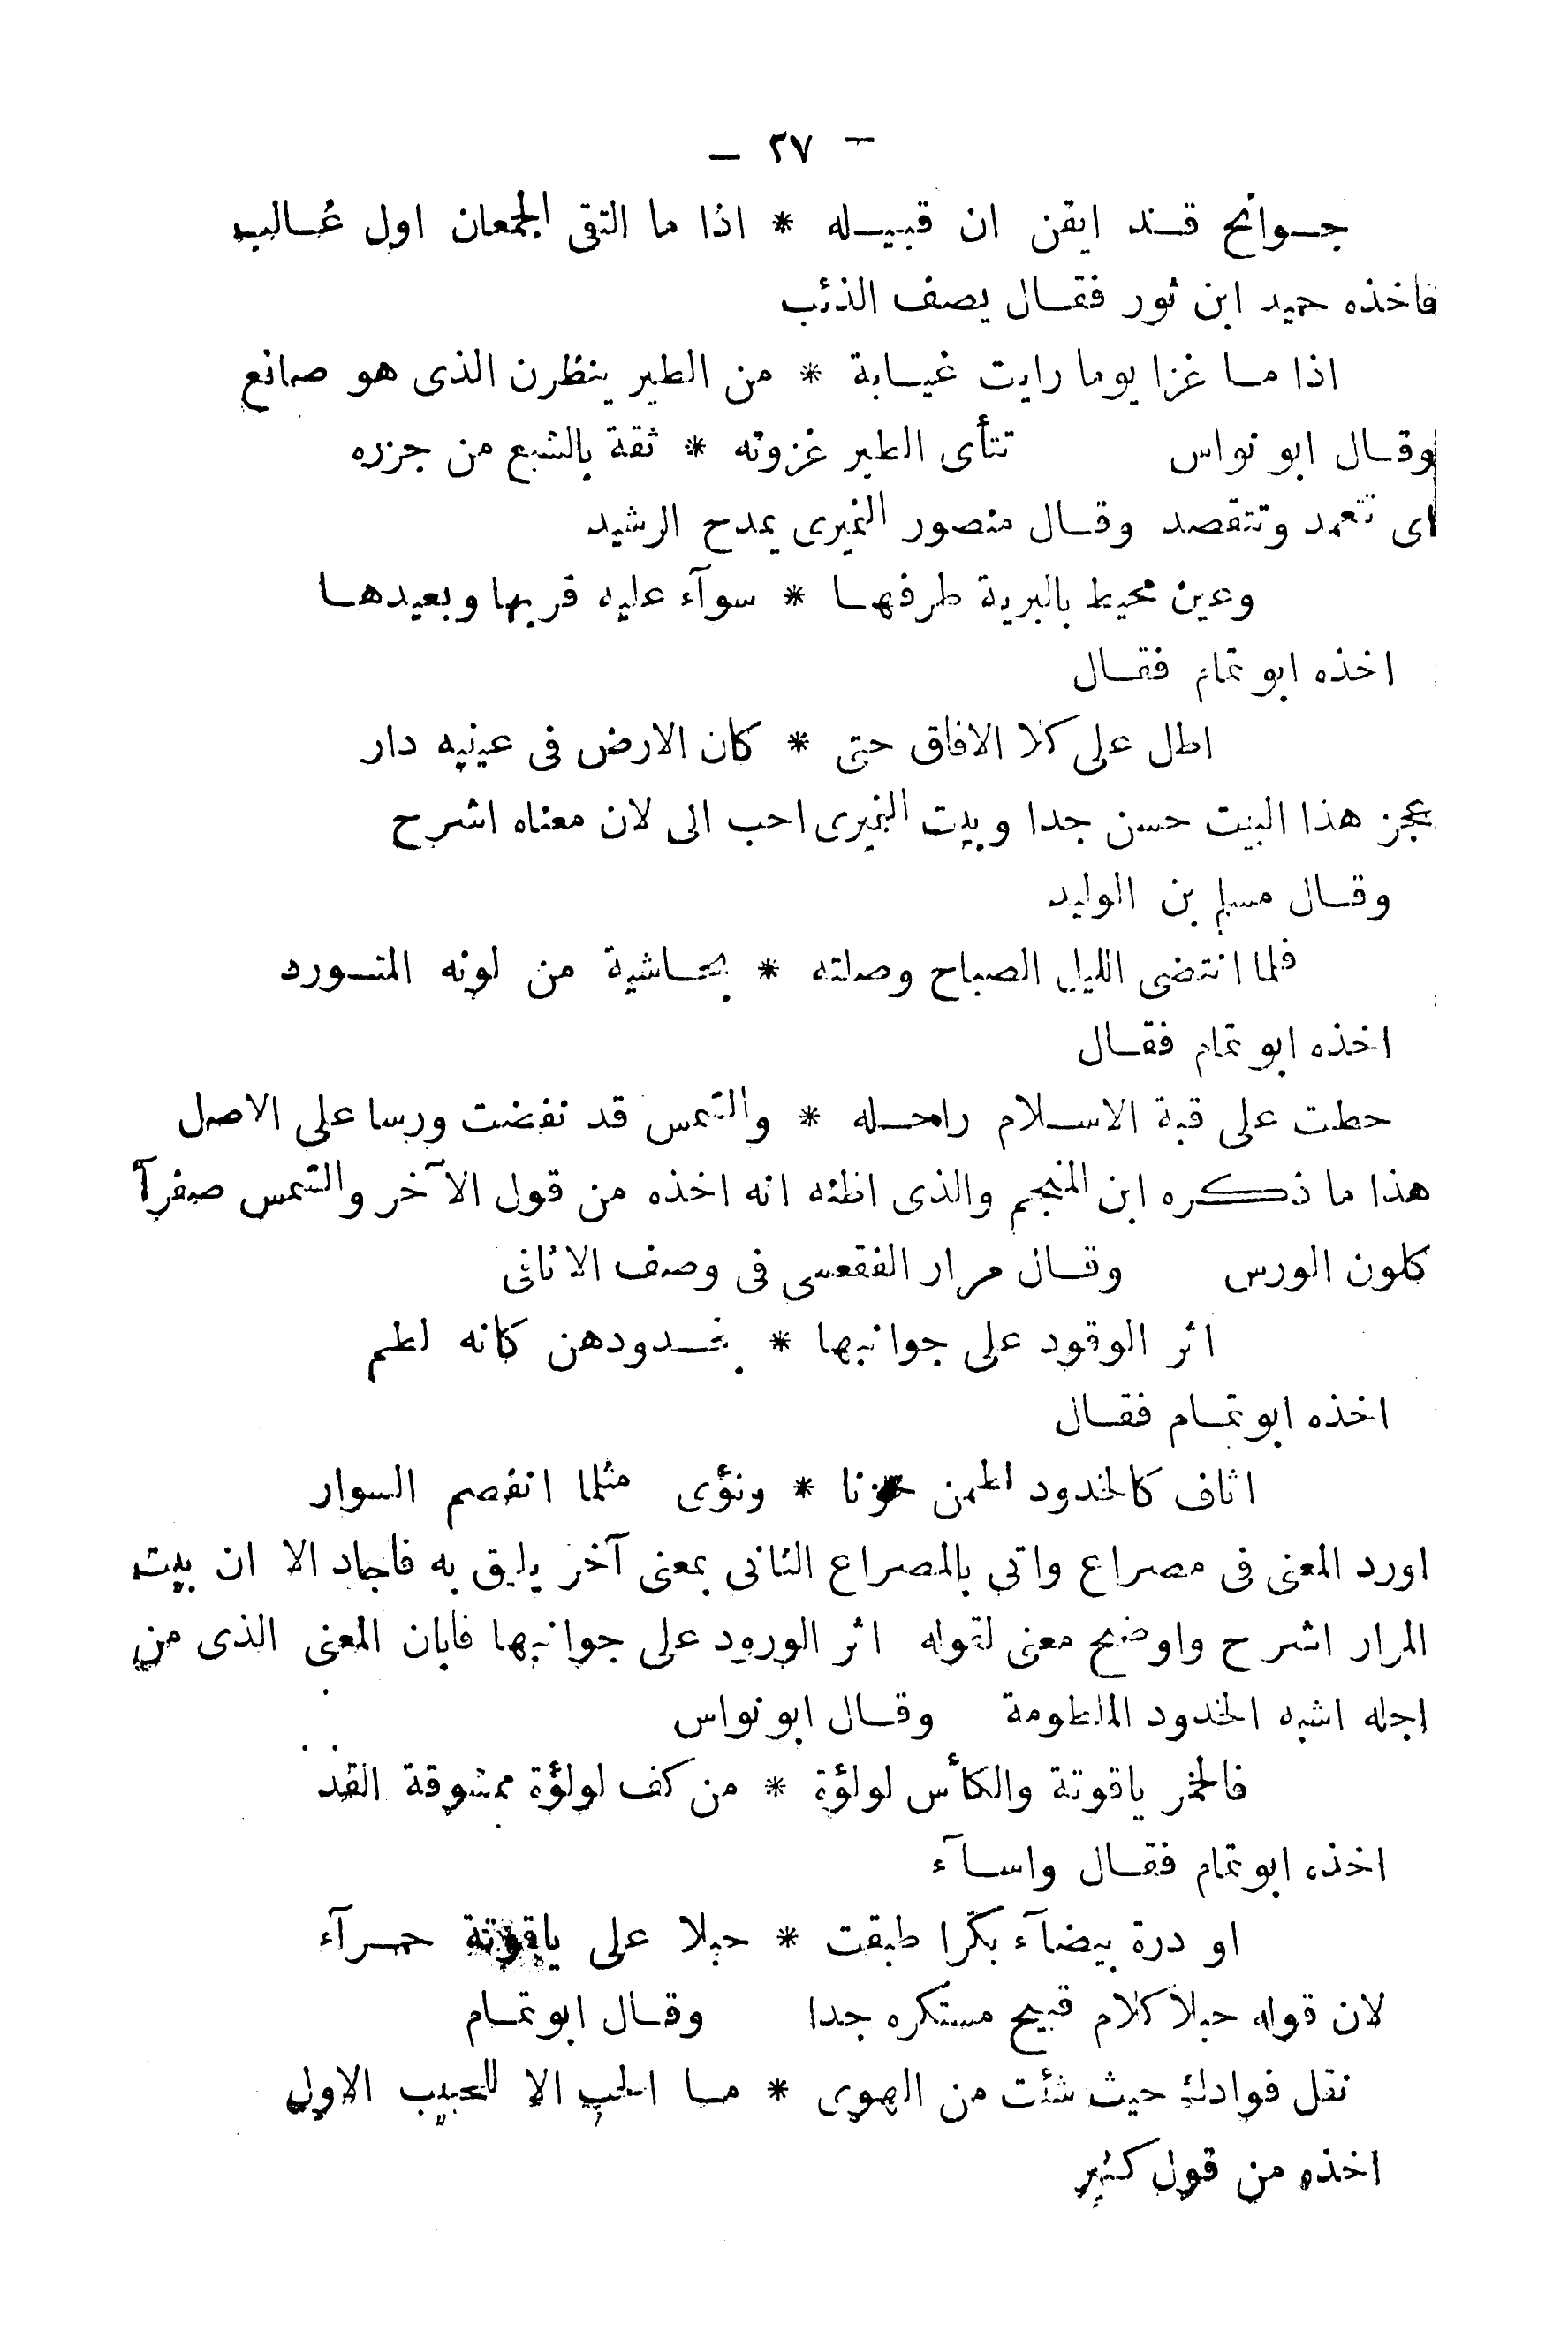 — ٢٧ —
جوانح قد ايقن ان قبيله * اذا ما التقى الجمعان اول غالب
فاخذه حميد ابن ثور فقال يصف الذئب
اذا ما غزا يوما رايت غيابة * من الطير ينظرن الذى هو صانع
وقال ابو نواس تتأى الطير غزوته * ثقة بالشبع من جزره
اى تتعمد وتتقصد وقال منصور النميرى يمدح الرشيد
وعين محيط بالبرية طرفها * سوآء عليه قربها وبعيدها
اخذه ابو تمام فقال
اطل على كلا الافاق حتى * كان الارض فى عينيه دار
عجز هذا البيت حسن جدا وبيت النميرى احب الى لان معناه اشرح
وقال مسلم بن الوليد
فلما انتضى الليل الصباح وصلته * بحاشية من لونه المتورد
اخذه ابو تمام فقال
حطت على قبة الاسلام راحله * والشمس قد نفضت ورسا على الاصل
هذا ما ذكره ابن المنجم والذى اظنه انه اخذه من قول الآخر والشمس صفرآ
كلون الورس وقال مرار الفقعسى فى وصف الاثافى
اثر الوقود على جوانبها * بخدودهن كانه لطم
اخذه ابو تمام فقال
اثاف كالخدود لطمن حزنا * ونؤى مثلما انفصم السوار
اورد المعنى فى مصراع واتى بالمصراع الثانى بمعنى آخر يليق به فاجاد الا ان بيت
المرار اشرح واوضح معنى لقوله اثر الورود على جوانبها فابان المعنى الذى من
اجله اشبه الخدود الملطومة وقال ابو نواس
فالخمر ياقوتة والكأس لولؤة * من كف لولؤة ممشوقة القد
اخذه ابو تمام فقال واسآء
او درة بيضآء بكرا طبقت * حبلا على ياقوتة حمرآء
لان قوله حبلا كلام قبيح مستكره جدا وقال ابو تمام
نقل فوادك حيث شئت من الهوى * ما الحب الا للحبيب الاول
اخذه من قول كثير